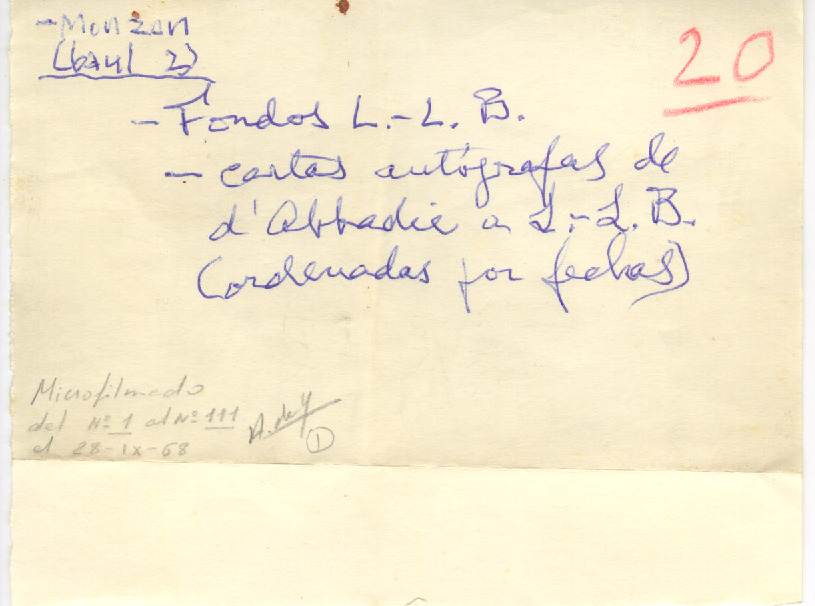 - Monzon
(baul 2)
20
- Fondos L.-L. B.
- cartas autógrafas de
d'Abbadie a L.-L. B.
(ordenadas por fechas)
Microfilmado
del Nº 1 al Nº 111
el 28-IX-68
A. de Y
1